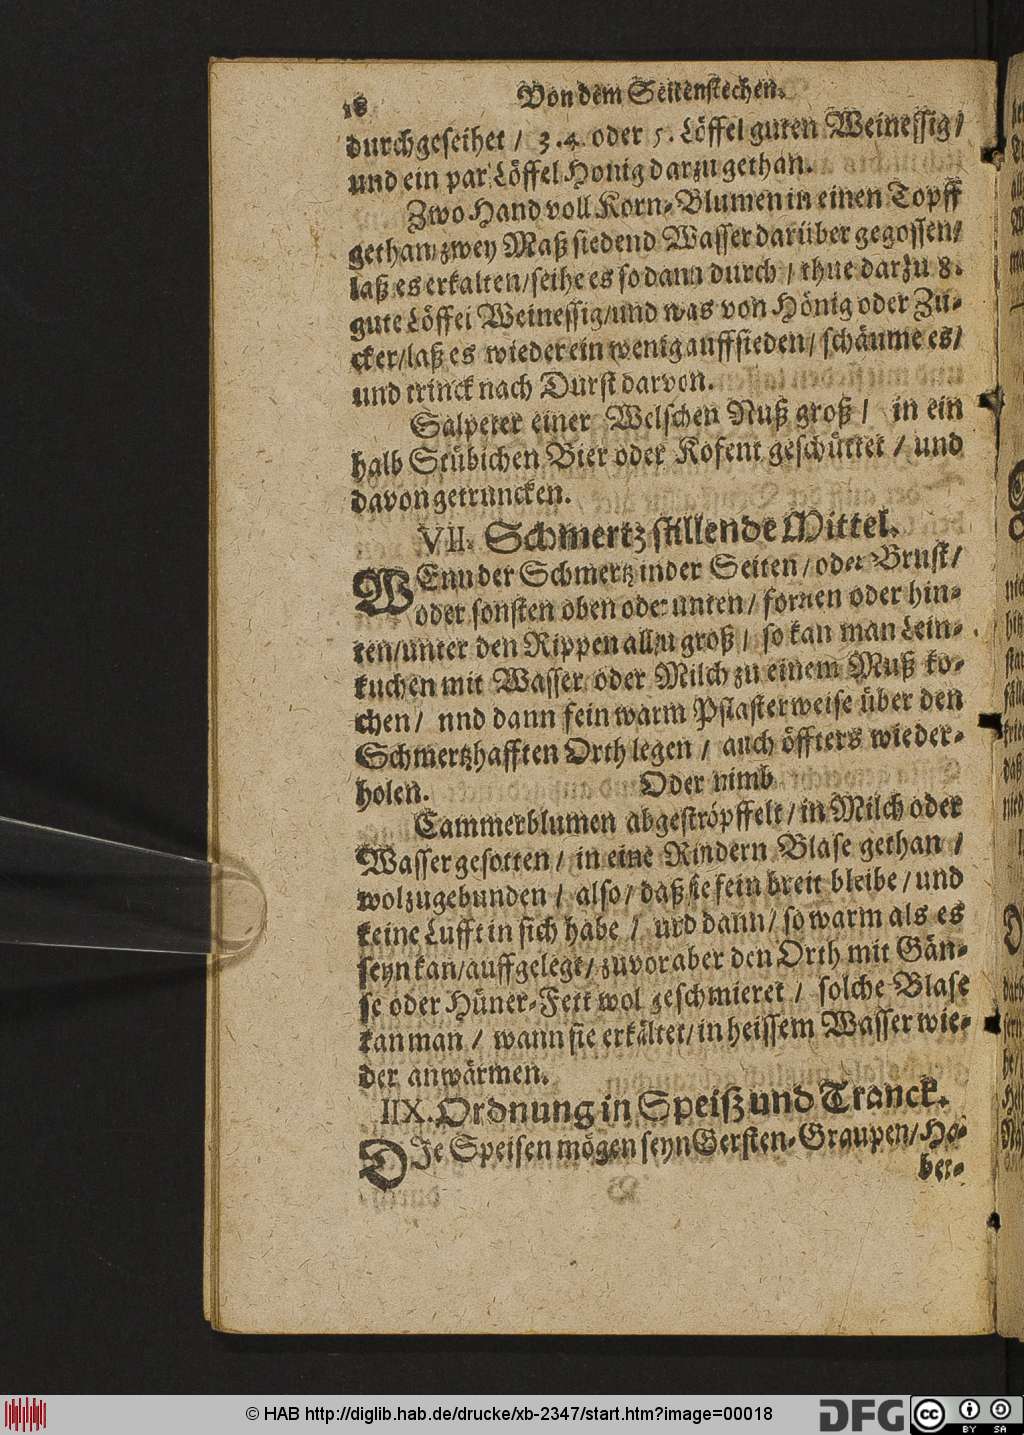 18 Von dem Seitenstechen.
durchgeseihet / 3. 4. oder 5. Löffel guten Weinessig /
und ein par Löffel Honig darzu gethan.
Zwo Hand voll Korn-Blumen in einen Topff
gethan/ zwey Maß siedend Wasser darüber gegossen/
laß es erkalten/seihe es so dann durch / thue darzu 8.
gute Löffel Weinessig/und was von Hönig oder Zu-
cker/laß es wieder ein wenig auffsieden/ schäume es/
und trinck nach Durst darvon.
Salpeter einer Welschen Nuß groß / in ein
halb Stübichen Bier oder Kofent geschüttet / und
davon getruncken.
VII. Schmertz stillende Mittel.
WEnn der Schmertz in der Seiten / oder Brust /
oder sonsten oben oder unten / fornen oder hin-
ten/unter den Rippen allzu groß / so kan man Lein-
kuchen mit Wasser oder Milch zu einem Muß ko-
chen / nnd dann fein warm Pflasterweise über den
Schmertzhafften Orth legen / auch öffters wieder-
holen. Oder nimb
Cammerblumen abgeströpffelt / in Milch oder
Wasser gesotten / in eine Rindern Blase gethan /
wolzugebunden / also / daß sie fein breit bleibe / und
keine Lufft in sich habe / und dann / so warm als es
seyn kan/auffgelegt / zuvor aber den Orth mit Gän-
se oder Hüner-Fett wol geschmieret / solche Blase
kan man / wann sie erkältet/ in heissem Wasser wie-
der anwärmen.
IIX. Ordnung in Speiß und Tranck.
DIe Speisen mögen seyn Gersten-Graupen/ Ha-
ber-
© HAB http://diglib.hab.de/drucke/xb-2347/start.htm?image=00018
DFG
CC BY SA